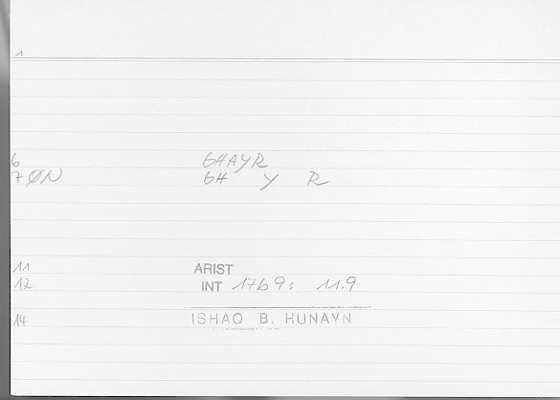 1
6 GHAYR
7 ØN GH Y R
11 ARIST
12 INT 17b9: 11.9
14 ISHAQ B. HUNAYN